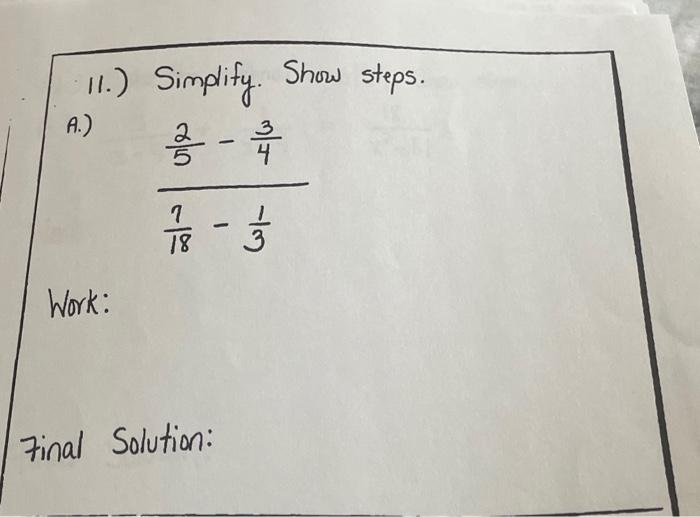 11.) Simplify. Show steps.
A.) 2/5 - 3/4
7/18 - 1/3
Work:
Final Solution: